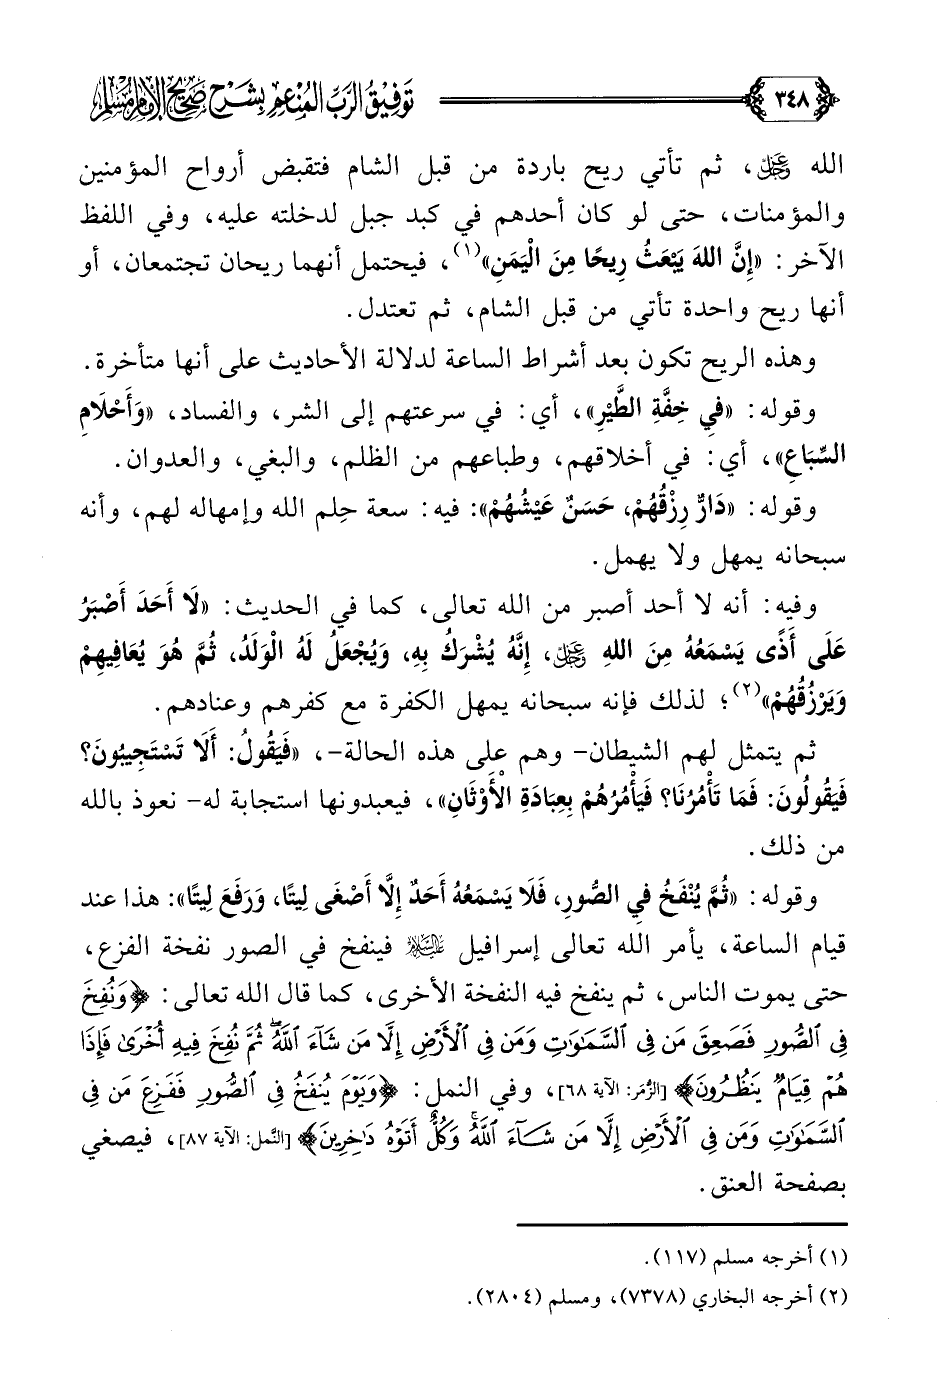 ٣٤٨
توفيق الرب المنعم بشرح صحيح الإمام مسلم
الله عَزَّوَجَلَّ، ثم تأتي ريح باردة من قبل الشام فتقبض أرواح المؤمنين
والمؤمنات، حتى لو كان أحدهم في كبد جبل لدخلته عليه، وفي اللفظ
الآخر: «إِنَّ اللهَ يَبْعَثُ رِيحًا مِنَ الْيَمَنِ»(١)، فيحتمل أنهما ريحان تجتمعان، أو
أنها ريح واحدة تأتي من قبل الشام، ثم تعتدل.
وهذه الريح تكون بعد أشراط الساعة لدلالة الأحاديث على أنها متأخرة.
وقوله: «فِي خِفَّةِ الطَّيْرِ»، أي: في سرعتهم إلى الشر، والفساد، «وَأَحْلَامِ
السِّبَاعِ»، أي: في أخلاقهم، وطباعهم من الظلم، والبغي، والعدوان.
وقوله: «دَارٌّ رِزْقُهُمْ، حَسَنٌ عَيْشُهُمْ»: فيه: سعة حِلم الله وإمهاله لهم، وأنه
سبحانه يمهل ولا يهمل.
وفيه: أنه لا أحد أصبر من الله تعالى، كما في الحديث: «لَا أَحَدَ أَصْبَرُ
عَلَى أَذًى يَسْمَعُهُ مِنَ اللهِ عَزَّوَجَلَّ، إِنَّهُ يُشْرَكُ بِهِ، وَيُجْعَلُ لَهُ الْوَلَدُ، ثُمَّ هُوَ يُعَافِيهِمْ
وَيَرْزُقُهُمْ»(٢)؛ لذلك فإنه سبحانه يمهل الكفرة مع كفرهم وعنادهم.
ثم يتمثل لهم الشيطان- وهم على هذه الحالة-، «فَيَقُولُ: أَلَا تَسْتَجِيبُونَ؟
فَيَقُولُونَ: فَمَا تَأْمُرُنَا؟ فَيَأْمُرُهُمْ بِعِبَادَةِ الْأَوْثَانِ»، فيعبدونها استجابة له- نعوذ بالله
من ذلك.
وقوله: «ثُمَّ يُنْفَخُ فِي الصُّورِ، فَلَا يَسْمَعُهُ أَحَدٌ إِلَّا أَصْغَى لِيتًا، وَرَفَعَ لِيتًا»: هذا عند
قيام الساعة، يأمر الله تعالى إسرافيل عَلَيْهِ السَّلَامُ فينفخ في الصور نفخة الفزع،
حتى يموت الناس، ثم ينفخ فيه النفخة الأخرى، كما قال الله تعالى: ﴿وَنُفِخَ
فِي ٱلصُّورِ فَصَعِقَ مَن فِي ٱلسَّمَٰوَٰتِ وَمَن فِي ٱلْأَرْضِ إِلَّا مَن شَآءَ ٱللَّهُ ۖ ثُمَّ نُفِخَ فِيهِ أُخْرَىٰ فَإِذَا
هُمْ قِيَامٌ يَنظُرُونَ﴾ [الزُّمَر: الآية ٦٨]، وفي النمل: ﴿وَيَوْمَ يُنفَخُ فِي ٱلصُّورِ فَفَزِعَ مَن فِي
ٱلسَّمَٰوَٰتِ وَمَن فِي ٱلْأَرْضِ إِلَّا مَن شَآءَ ٱللَّهُ ۚ وَكُلٌّ أَتَوْهُ دَٰخِرِينَ﴾ [النَّمل: الآية ٨٧]، فيصغي
بصفحة العنق.
(١) أخرجه مسلم (١١٧).
(٢) أخرجه البخاري (٧٣٧٨)، ومسلم (٢٨٠٤).